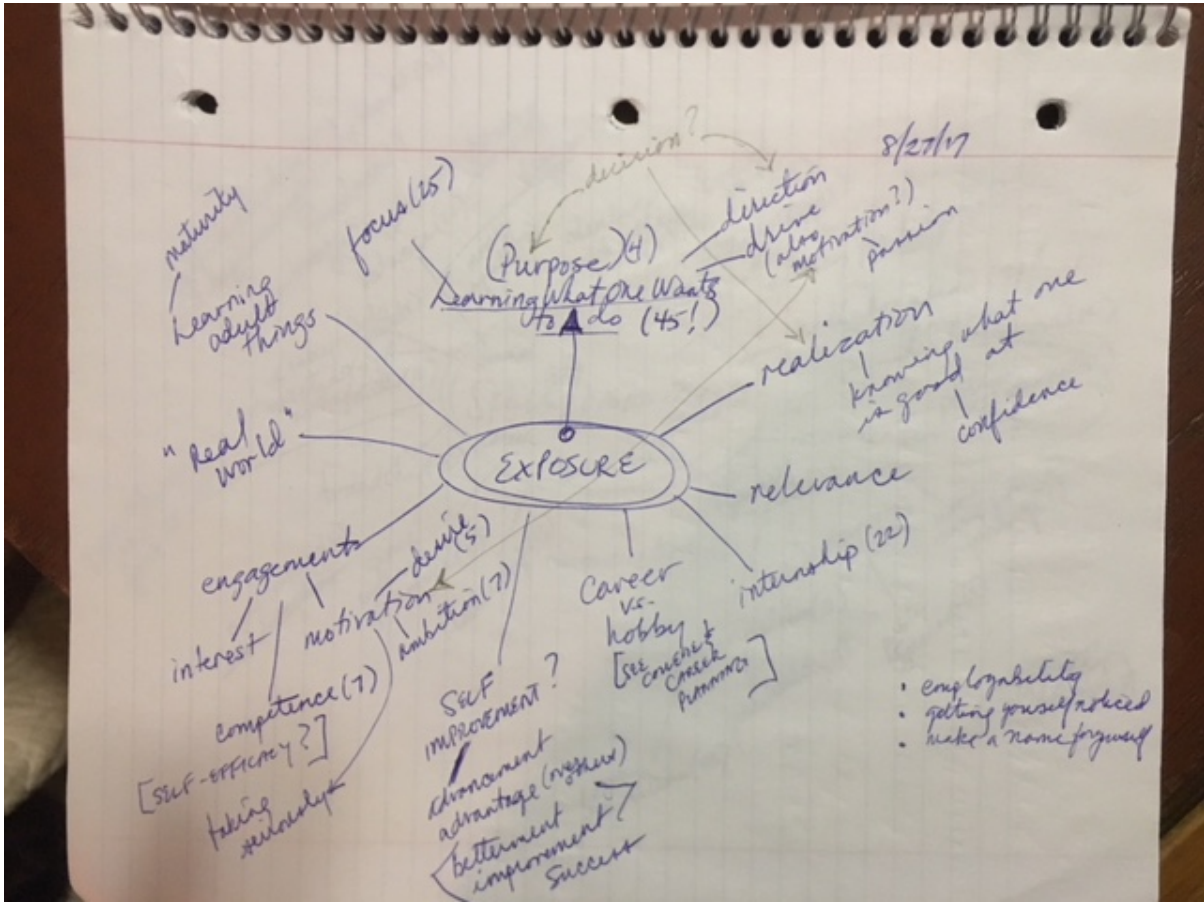 8/27/17
decision?
maturity
Learning
adult
things
focus (25)
(Purpose) (4)
Learning What One Wants
to do (45!)
direction
drive
(also
motivation?)
passion
realization
knowing what one
is good at
confidence
"Real
World"
EXPOSURE
relevance
internship (22)
engagements
interest
motivation
desire
(5)
ambition (7)
competence (7)
[SELF-EFFICACY?]
taking
seriously
SELF
IMPROVEMENT?
advancement
advantage (over others)
betterment
improvement
success
Career
vs.
hobby
[SEE
COLLEGE &
CAREER
PLANNING]
• employability
• getting yourself noticed
• make a name for yourself